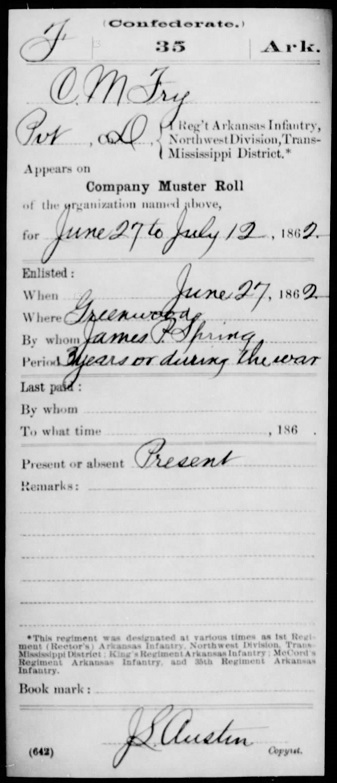 (Confederate.)
F 35 Ark.
C. M Fry
Pvt, Co. D, { 1 Reg't Arkansas Infantry,
Northwest Division, Trans-
Mississippi District.*
Appears on
Company Muster Roll
of the organization named above,
for June 27 to July 12, 1862.
Enlisted:
When June 27, 1862.
Where Greenwood
By whom James P. Spring
Period 3 years or during the war
Last paid:
By whom
To what time , 186 .
Present or absent Present
Remarks:
*This regiment was designated at various times as 1st Regi-
ment (Rector's) Arkansas Infantry, Northwest Division, Trans-
Mississippi District; King's Regiment Arkansas Infantry; McCord's
Regiment Arkansas Infantry, and 35th Regiment Arkansas
Infantry.
Book mark:
J L Austin
(642) Copyist.